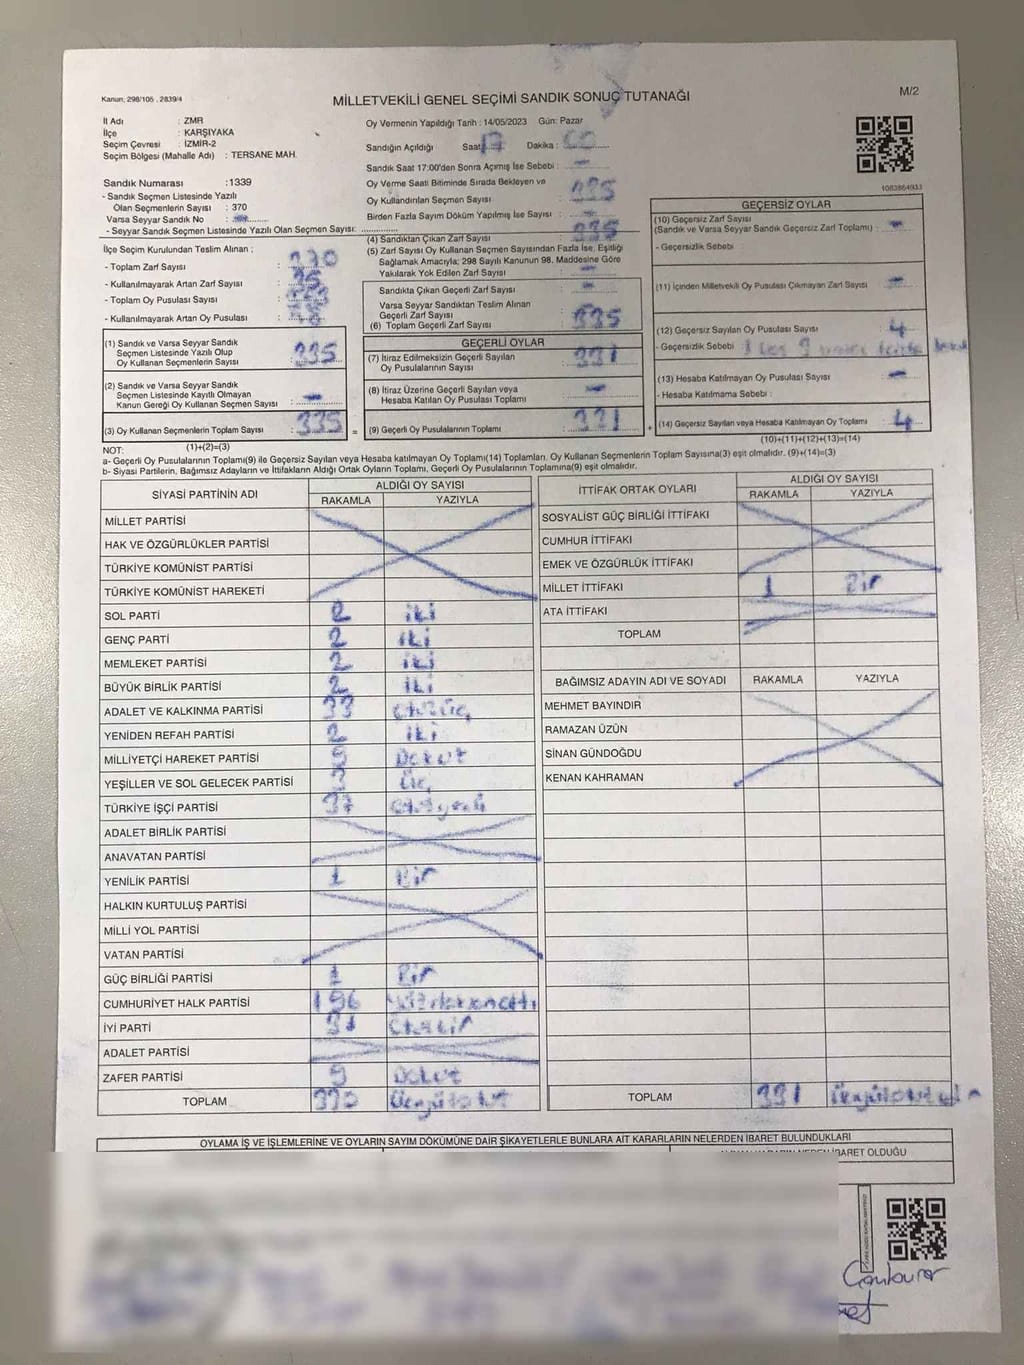 Kanun; 298/105 , 2839/4
MİLLETVEKİLİ GENEL SEÇİMİ SANDIK SONUÇ TUTANAĞI
M/2
İl Adı : ZMR
İlçe : KARŞIYAKA
Seçim Çevresi : İZMİR-2
Seçim Bölgesi (Mahalle Adı) : TERSANE MAH.
Oy Vermenin Yapıldığı Tarih : 14/05/2023 Gün: Pazar
Sandığın Açıldığı Saat: 17 Dakika :
Sandık Saat 17:00'den Sonra Açımış İse Sebebi : -
Oy Verme Saati Bitiminde Sırada Bekleyen ve
Oy Kullandırılan Seçmen Sayısı : 335
Birden Fazla Sayım Döküm Yapılmış İse Sayısı : -
1083864933
Sandık Numarası :1339
- Sandık Seçmen Listesinde Yazılı
Olan Seçmenlerin Sayısı : 370
Varsa Seyyar Sandık No :
- Seyyar Sandık Seçmen Listesinde Yazılı Olan Seçmen Sayısı:
İlçe Seçim Kurulundan Teslim Alınan ;
- Toplam Zarf Sayısı :
- Kullanılmayarak Artan Zarf Sayısı :
- Toplam Oy Pusulası Sayısı :
- Kullanılmayarak Artan Oy Pusulası :
(1) Sandık ve Varsa Seyyar Sandık
Seçmen Listesinde Yazılı Olup
Oy Kullanan Seçmenlerin Sayısı : 335
(2) Sandık ve Varsa Seyyar Sandık
Seçmen Listesinde Kayıtlı Olmayan
Kanun Gereği Oy Kullanan Seçmen Sayısı : -
(3) Oy Kullanan Seçmenlerin Toplam Sayısı : 335
(4) Sandıktan Çıkan Zarf Sayısı : 335
(5) Zarf Sayısı Oy Kullanan Seçmen Sayısından Fazla İse, Eşitliği
Sağlamak Amacıyla; 298 Sayılı Kanunun 98. Maddesine Göre
Yakılarak Yok Edilen Zarf Sayısı : -
Sandıkta Çıkan Geçerli Zarf Sayısı : -
Varsa Seyyar Sandıktan Teslim Alınan
Geçerli Zarf Sayısı :
(6) Toplam Geçerli Zarf Sayısı : 335
GEÇERLİ OYLAR
(7) İtiraz Edilmeksizin Geçerli Sayılan
Oy Pusulalarının Sayısı : 331
(8) İtiraz Üzerine Geçerli Sayılan veya
Hesaba Katılan Oy Pusulası Toplamı : -
= (9) Geçerli Oy Pusulalarının Toplamı : 331 +
GEÇERSİZ OYLAR
(10) Geçersiz Zarf Sayısı
(Sandık ve Varsa Seyyar Sandık Geçersiz Zarf Toplamı) : -
- Geçersizlik Sebebi
(11) İçinden Milletvekili Oy Pusulası Çıkmayan Zarf Sayısı : -
(12) Geçersiz Sayılan Oy Pusulası Sayısı : 4
- Geçersizlik Sebebi
(13) Hesaba Katılmayan Oy Pusulası Sayısı : -
- Hesaba Katılmama Sebebi :
(14) Geçersiz Sayılan veya Hesaba Katılmayan Oy Toplamı : 4
(10)+(11)+(12)+(13)=(14)
NOT: (1)+(2)=(3)
a- Geçerli Oy Pusulalarının Toplamı(9) ile Geçersiz Sayılan veya Hesaba katılmayan Oy Toplamı(14) Toplamları. Oy Kullanan Seçmenlerin Toplam Sayısına(3) eşit olmalıdır. (9)+(14)=(3)
b- Siyasi Partilerin, Bağımsız Adayların ve İttifakların Aldığı Ortak Oyların Toplamı, Geçerli Oy Pusulalarının Toplamına(9) eşit olmalıdır.
SİYASİ PARTİNİN ADI
ALDIĞI OY SAYISI
RAKAMLA YAZIYLA
MİLLET PARTİSİ
HAK VE ÖZGÜRLÜKLER PARTİSİ
TÜRKİYE KOMÜNİST PARTİSİ
TÜRKİYE KOMÜNİST HAREKETİ
SOL PARTİ 2 iki
GENÇ PARTİ 2 iki
MEMLEKET PARTİSİ 2 iki
BÜYÜK BİRLİK PARTİSİ 2 iki
ADALET VE KALKINMA PARTİSİ 33 otuzüç
YENİDEN REFAH PARTİSİ 2 iki
MİLLİYETÇİ HAREKET PARTİSİ 9 Dokuz
YEŞİLLER VE SOL GELECEK PARTİSİ 3 üç
TÜRKİYE İŞÇİ PARTİSİ 37 otuzyedi
ADALET BİRLİK PARTİSİ
ANAVATAN PARTİSİ
YENİLİK PARTİSİ 1 Bir
HALKIN KURTULUŞ PARTİSİ
MİLLİ YOL PARTİSİ
VATAN PARTİSİ
GÜÇ BİRLİĞİ PARTİSİ 1 Bir
CUMHURİYET HALK PARTİSİ 196 yüzdoksanaltı
İYİ PARTİ 31 otuzbir
ADALET PARTİSİ
ZAFER PARTİSİ 9 Dokuz
TOPLAM 330 üçyüzotuz
İTTİFAK ORTAK OYLARI
ALDIĞI OY SAYISI
RAKAMLA YAZIYLA
SOSYALİST GÜÇ BİRLİĞİ İTTİFAKI
CUMHUR İTTİFAKI
EMEK VE ÖZGÜRLÜK İTTİFAKI
MİLLET İTTİFAKI 1 Bir
ATA İTTİFAKI
TOPLAM
BAĞIMSIZ ADAYIN ADI VE SOYADI RAKAMLA YAZIYLA
MEHMET BAYINDIR
RAMAZAN ÜZÜN
SİNAN GÜNDOĞDU
KENAN KAHRAMAN
TOPLAM 331
OYLAMA İŞ VE İŞLEMLERİNE VE OYLARIN SAYIM DÖKÜMÜNE DAİR ŞİKAYETLERLE BUNLARA AİT KARARLARIN NELERDEN İBARET BULUNDUKLARI
İBARET OLDUĞU